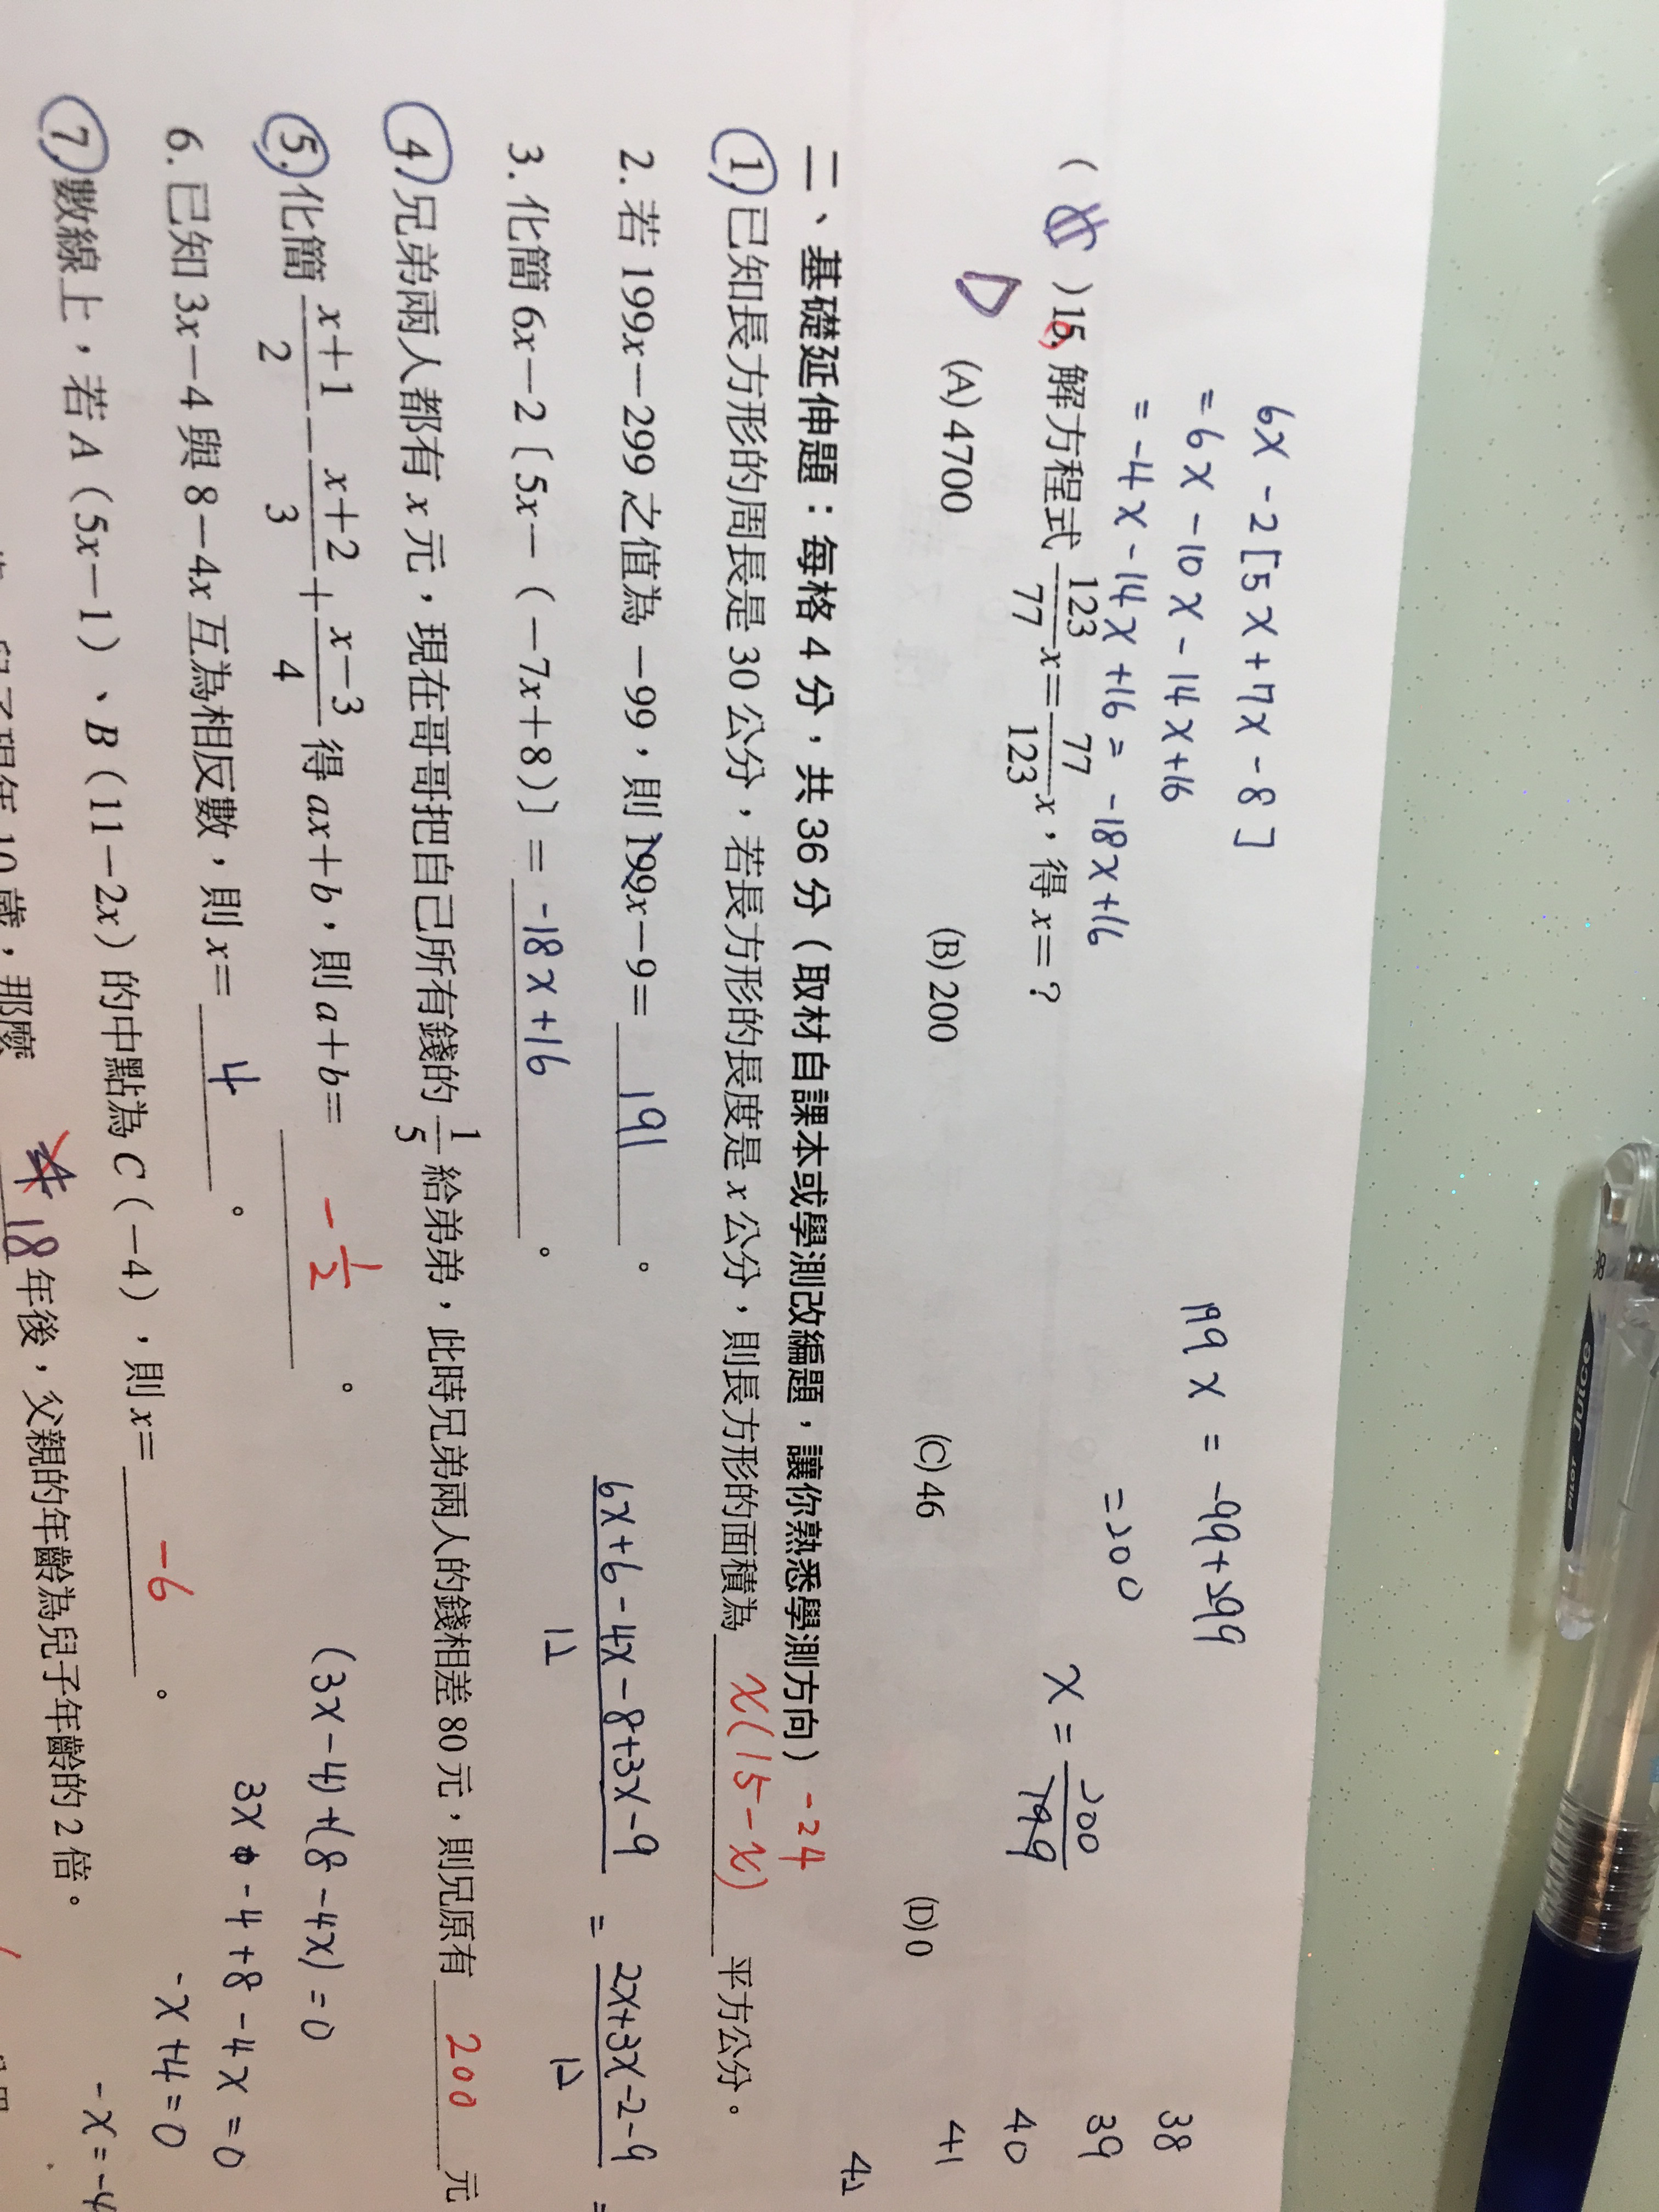 6x-2[5x+7x-8]
=6x-10x-14x+16
=-4x-14x+16=-18x+16
199x=-99+299
=200
x=200/199
38
39
40
41
42
( )15. 解方程式 123/77 x=77/123 x,得 x=?
D
(A) 4700 (B) 200 (C) 46 (D) 0
二、基礎延伸題:每格 4 分,共 36 分(取材自課本或學測改編題,讓你熟悉學測方向) -24
1.已知長方形的周長是 30 公分,若長方形的長度是 x 公分,則長方形的面積為 x(15-x) 平方公分。
2. 若 199x-299 之值為-99,則199x-9= 191 。
6x+6-4x-8+3x-9/12 = 2x+3x-2-9/12 =
3. 化簡 6x-2〔5x-(-7x+8)〕= -18x+16 。
4.兄弟兩人都有 x 元,現在哥哥把自己所有錢的 1/5 給弟弟,此時兄弟兩人的錢相差 80 元,則兄原有 200 元
5.化簡 x+1/2 - x+2/3 + x-3/4 得 ax+b,則 a+b= -1/2 。
(3x-4)+(8-4x)=0
3x-4+8-4x=0
-x+4=0
-x=-4
6. 已知 3x-4 與 8-4x 互為相反數,則 x= 4 。
7.數線上,若 A(5x-1)、B(11-2x)的中點為 C(-4),則 x= -6 。
兒子現年 10 歲,那麼 18 年後,父親的年齡為兒子年齡的 2 倍。